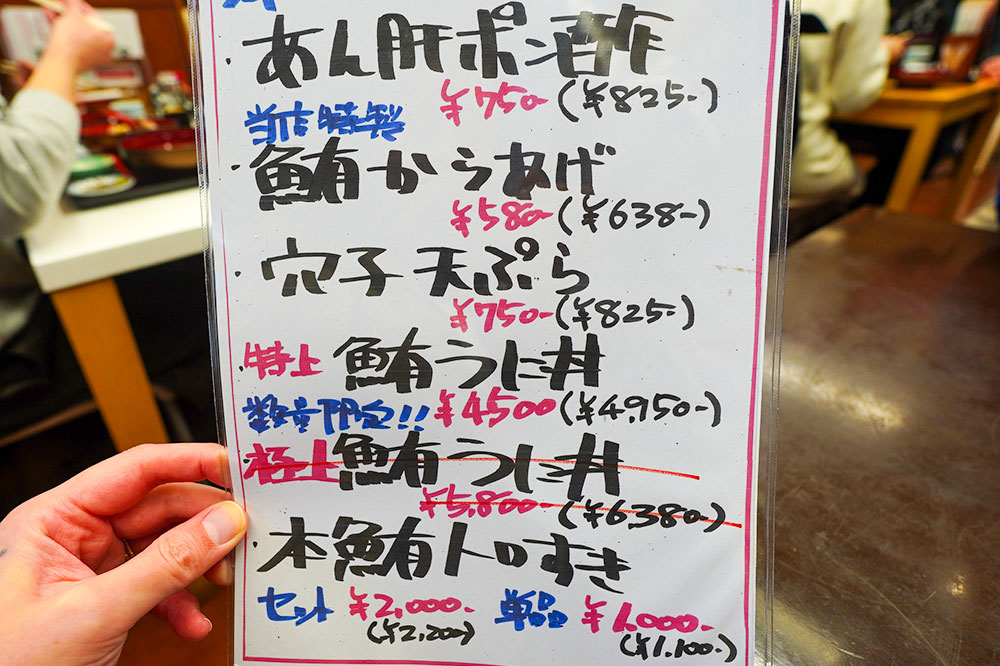 あん肝ポン酢
¥750-(¥825-)
当店特製
・鮪からあげ
¥580-(¥638-)
・穴子天ぷら
¥750-(¥825-)
・特上 鮪うに丼
数量限定!! ¥4500(¥4,950-)
・極上 鮪うに丼
¥5,800-(¥6,380-)
・本鮪トロすき
セット ¥2,000- 単品 ¥1,000-
(¥2,200-) (¥1,100-)